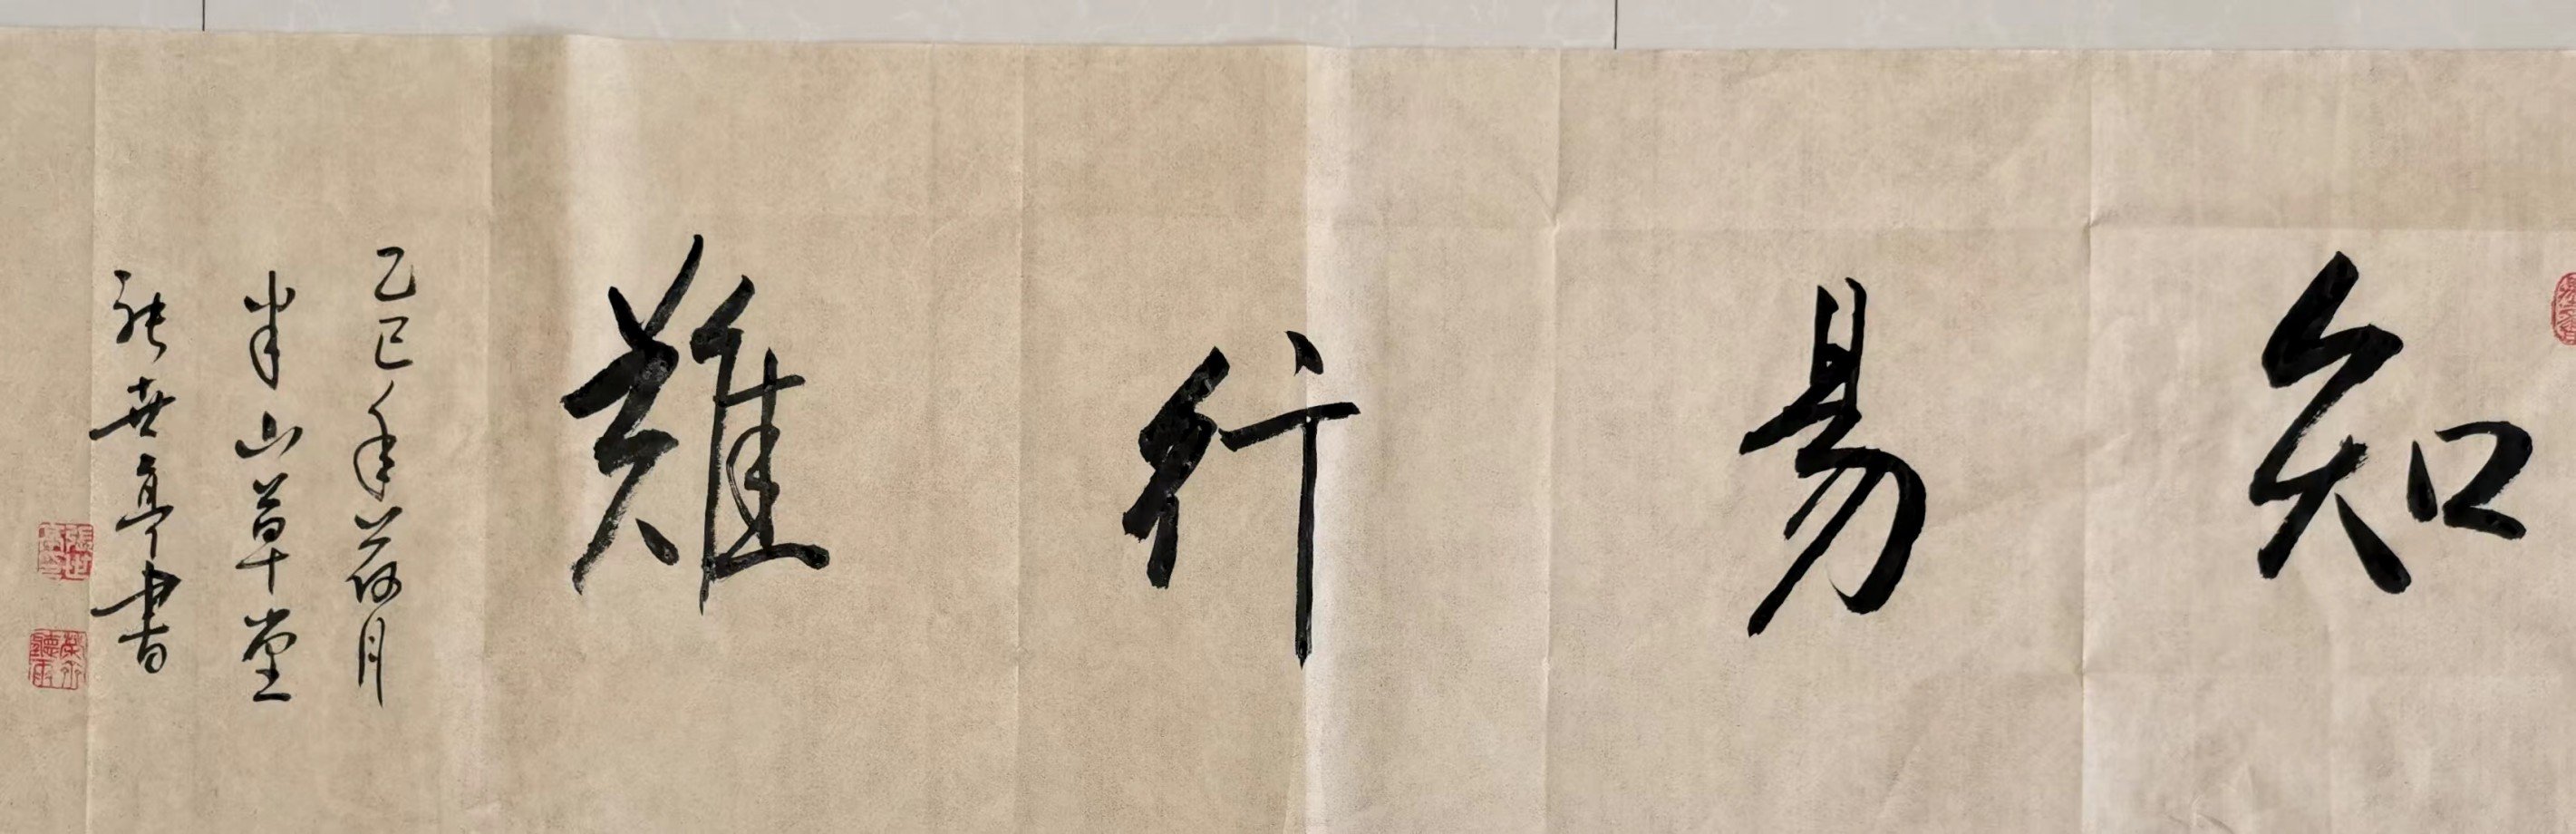 知易行難
乙巳年荷月
半山草堂
張世亭書